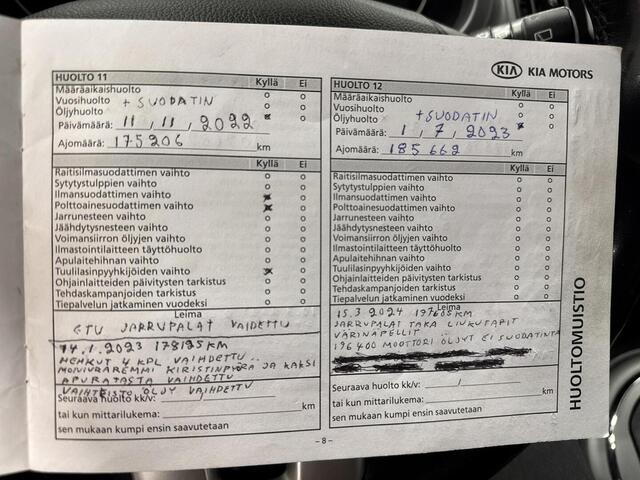 KIA KIA MOTORS
HUOLTO 11
Kyllä Ei
Määräaikaishuolto
Vuosihuolto
Öljyhuolto + SUODATIN
Päivämäärä: 11, 11, 2022
Ajomäärä: 175206 km
Kyllä Ei
Raitisilmasuodattimen vaihto
Sytytystulppien vaihto
Ilmansuodattimen vaihto
Polttoainesuodattimen vaihto
Jarrunesteen vaihto
Jäähdytysnesteen vaihto
Voimansiirron öljyjen vaihto
Ilmastointilaitteen täyttöhuolto
Apulaitehihnan vaihto
Tuulilasinpyyhkijöiden vaihto
Ohjainlaitteiden päivitysten tarkistus
Tehdaskampanjoiden tarkistus
Tiepalvelun jatkaminen vuodeksi
Leima
ETU JARRUPALAT VAIDETTU
14.1.2023 178125 KM
HEHKUT 4 KPL VAIHDETTU..
MONIURAREMMI KIRISTINPYÖRÄ JA KAKSI
APURATASTA VAIHDETTU
VAIHTEISTO ÖLJY VAIHDETTU
Seuraava huolto kk/v:
km
tai kun mittarilukema:
sen mukaan kumpi ensin saavutetaan
HUOLTO 12
Kyllä Ei
Määräaikaishuolto
Vuosihuolto
Öljyhuolto + SUODATIN
Päivämäärä: 1, 7, 2023
Ajomäärä: 185 662 km
Kyllä Ei
Raitisilmasuodattimen vaihto
Sytytystulppien vaihto
Ilmansuodattimen vaihto
Polttoainesuodattimen vaihto
Jarrunesteen vaihto
Jäähdytysnesteen vaihto
Voimansiirron öljyjen vaihto
Ilmastointilaitteen täyttöhuolto
Apulaitehihnan vaihto
Tuulilasinpyyhkijöiden vaihto
Ohjainlaitteiden päivitysten tarkistus
Tehdaskampanjoiden tarkistus
Tiepalvelun jatkaminen vuodeksi
Leima
15.3 2024 KM
JARRUPALAT TAKA LIUKUTAPIT
VÄRINÄPELLIT
196400 MOOTTORI ÖLJYT EI SUODATINTA
Seuraava huolto kk/v: /
tai kun mittarilukema: km
sen mukaan kumpi ensin saavutetaan
HUOLTOMUISTIO
– 8 –